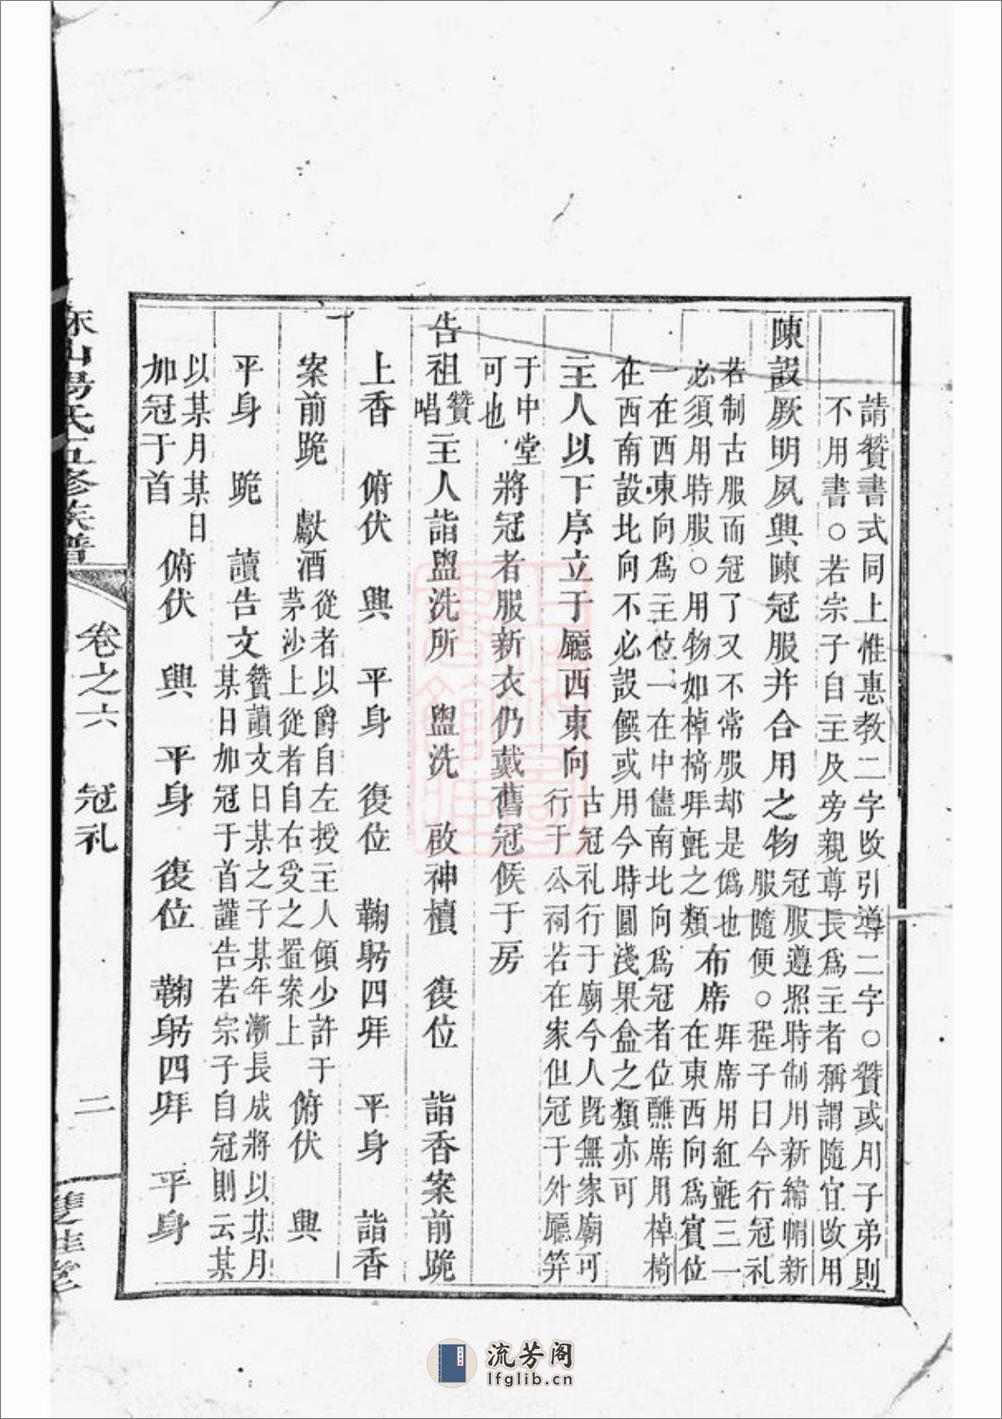 請贊書式同上惟惠教二字改引導二字○贊或用子弟則
不用書○若宗子自主及旁親尊長爲主者稱謂隨宜改用
陳設厥明夙興陳冠服并合用之物冠服遵照時制用新緯帽新
服隨便○程子曰今行冠礼
若制古服而冠了又不常服却是僞也布席拜席用紅氈三一
必須用時服○用物如棹椅拜氈之類在東西向爲賓位
一在西東向爲主位一在中儘南北向爲冠者位醮席用棹椅
在西南設北向不必設饌或用今時圓淺果盒之類亦可
主人以下序立于廳西東向古冠礼行于廟今人既無家廟可
行于公祠若在家但冠于外廳筓
于中堂
可也將冠者服新衣仍戴舊冠候于房
告祖贊
唱主人詣盥洗所 盥洗 啟神櫝 復位 詣香案前跪
上香 俯伏 興 平身 復位 鞠躬四拜 平身 詣香
案前跪 獻酒從者以爵自左授主人傾少許于
茅沙上從者自右受之置案上俯伏 興
平身 跪 讀告文贊讀文曰某之子某年漸長成將以某月
某日加冠于首謹告若宗子自冠則云某
以某月某日
加冠于首俯伏 興 平身 復位 鞠躬四拜 平身
山湯氏五修族譜
卷之六 冠礼
二
雙桂堂
流芳阁
lfglib.cn